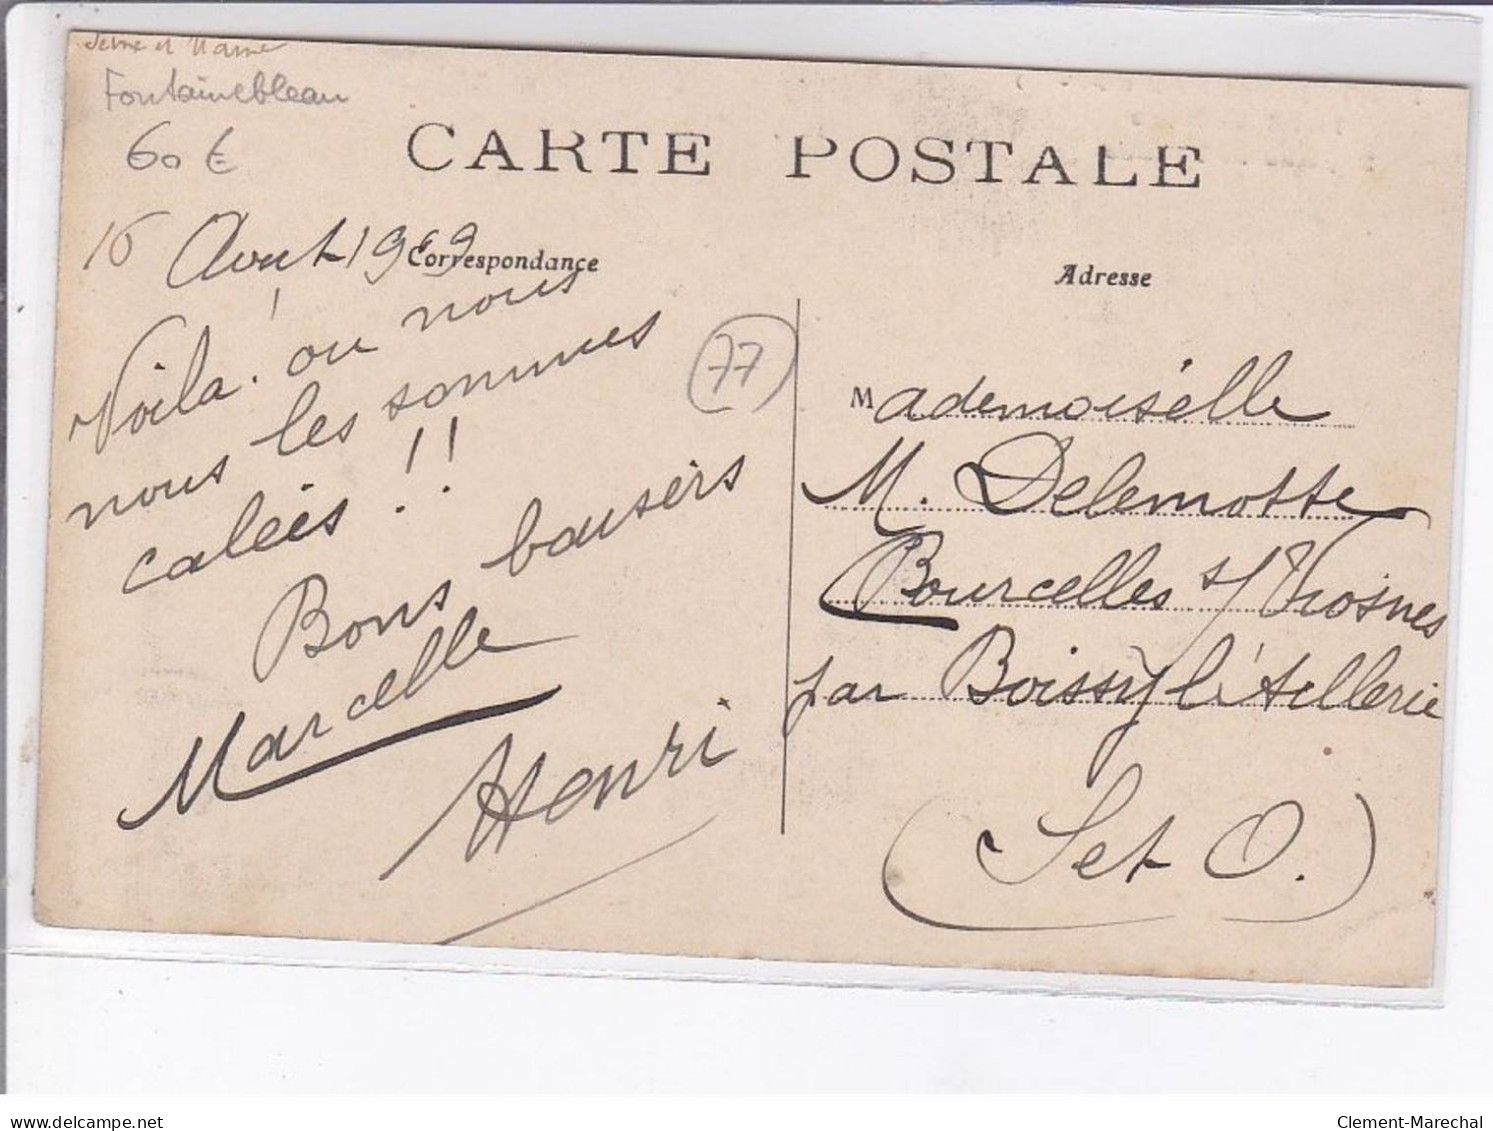 Seine et Marne
Fontainebleau
60 €
CARTE POSTALE
16 Avout 1909
Correspondance
Adresse
Voilà où nous
nous les sommes
calées !!
Bons baisers
Marcelle
Henri
77
Mademoiselle
M. Delemotte
Bourcelles s/
par Boissy l'
(S et O.)
delcampe.net
Clement-Marechal